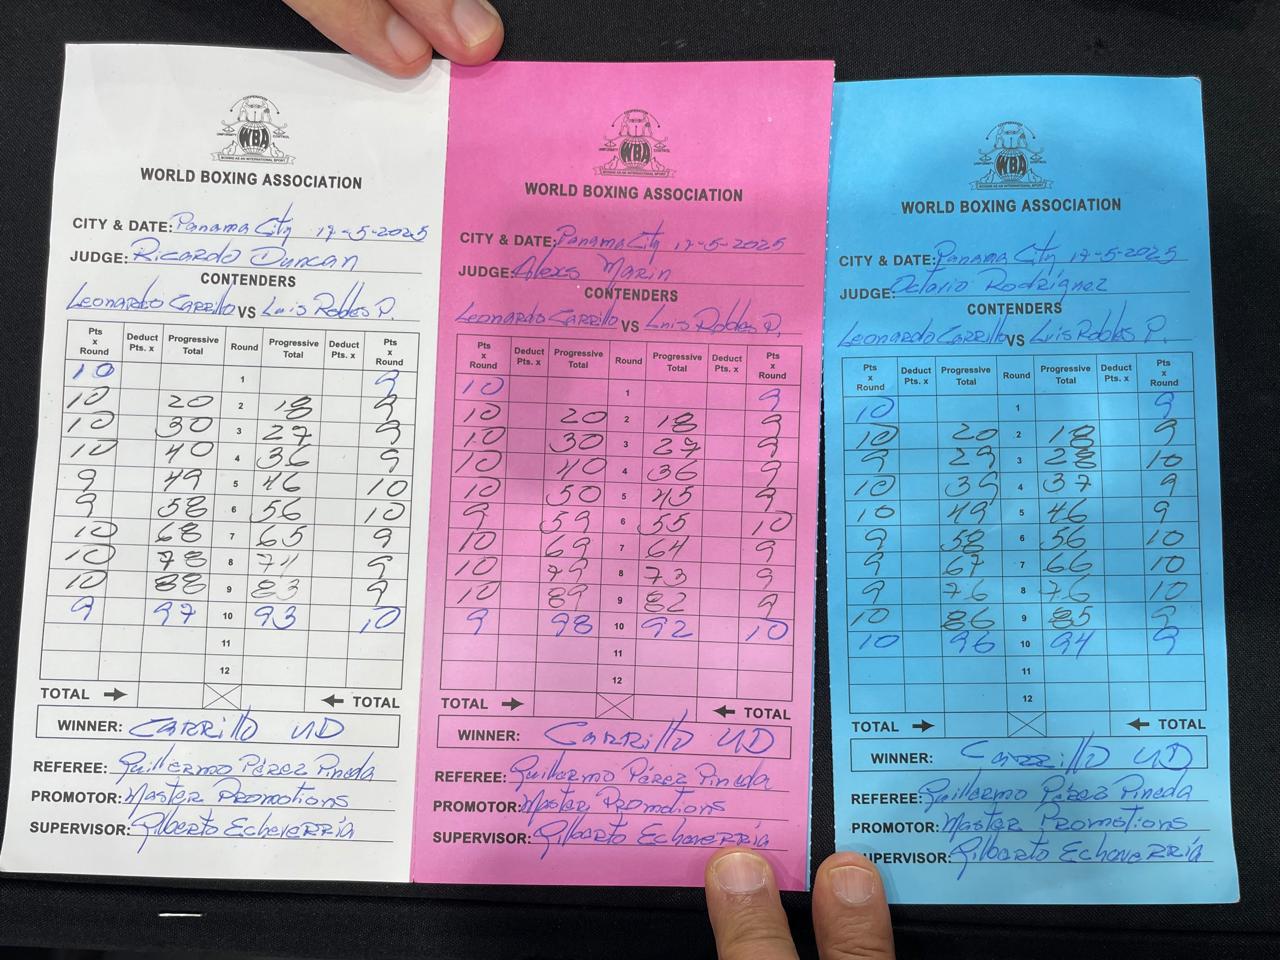 COOPERATION
UNIFORMITY WBA CONTROL
BOXING AS AN INTERNATIONAL SPORT
WORLD BOXING ASSOCIATION
CITY & DATE: Panama City 17-5-2025
JUDGE: Ricardo Duncan
CONTENDERS
Leonardo Carrillo VS Luis Robles P.
Pts x Round Deduct Pts. x Progressive Total Round Progressive Total Deduct Pts. x Pts x Round
10 1 9
10 20 2 18 9
10 30 3 27 9
10 40 4 36 9
9 49 5 46 10
9 58 6 56 10
10 68 7 65 9
10 78 8 74 9
10 88 9 83 9
9 97 10 93 10
11
12
TOTAL → ← TOTAL
WINNER: CARRILLO UD
REFEREE: Guillermo Pérez Pineda
PROMOTOR: Master Promotions
SUPERVISOR: Gilberto Echeverría
COOPERATION
UNIFORMITY WBA CONTROL
BOXING AS AN INTERNATIONAL SPORT
WORLD BOXING ASSOCIATION
CITY & DATE: Panama City 17-5-2025
JUDGE: Alexs Marin
CONTENDERS
Leonardo Carrillo VS Luis Robles P.
Pts x Round Deduct Pts. x Progressive Total Round Progressive Total Deduct Pts. x Pts x Round
10 1 9
10 20 2 18 9
10 30 3 27 9
10 40 4 36 9
10 50 5 45 9
9 59 6 55 10
10 69 7 64 9
10 79 8 73 9
10 89 9 82 9
9 98 10 92 10
11
12
TOTAL → ← TOTAL
WINNER: CARRILLO UD
REFEREE: Guillermo Pérez Pineda
PROMOTOR: Master Promotions
SUPERVISOR: Gilberto Echeverría
COOPERATION
UNIFORMITY WBA CONTROL
BOXING AS AN INTERNATIONAL SPORT
WORLD BOXING ASSOCIATION
CITY & DATE: Panama City 17-5-2025
JUDGE: Octavio Rodríguez
CONTENDERS
Leonardo Carrillo VS Luis Robles P.
Pts x Round Deduct Pts. x Progressive Total Round Progressive Total Deduct Pts. x Pts x Round
10 1 9
10 20 2 18 9
9 29 3 28 10
10 39 4 37 9
10 49 5 46 9
9 58 6 56 10
9 67 7 66 10
9 76 8 76 10
10 86 9 85 9
10 96 10 94 9
11
12
TOTAL → ← TOTAL
WINNER: CARRILLO UD
REFEREE: Guillermo Pérez Pineda
PROMOTOR: Master Promotions
UPERVISOR: Gilberto Echeverría